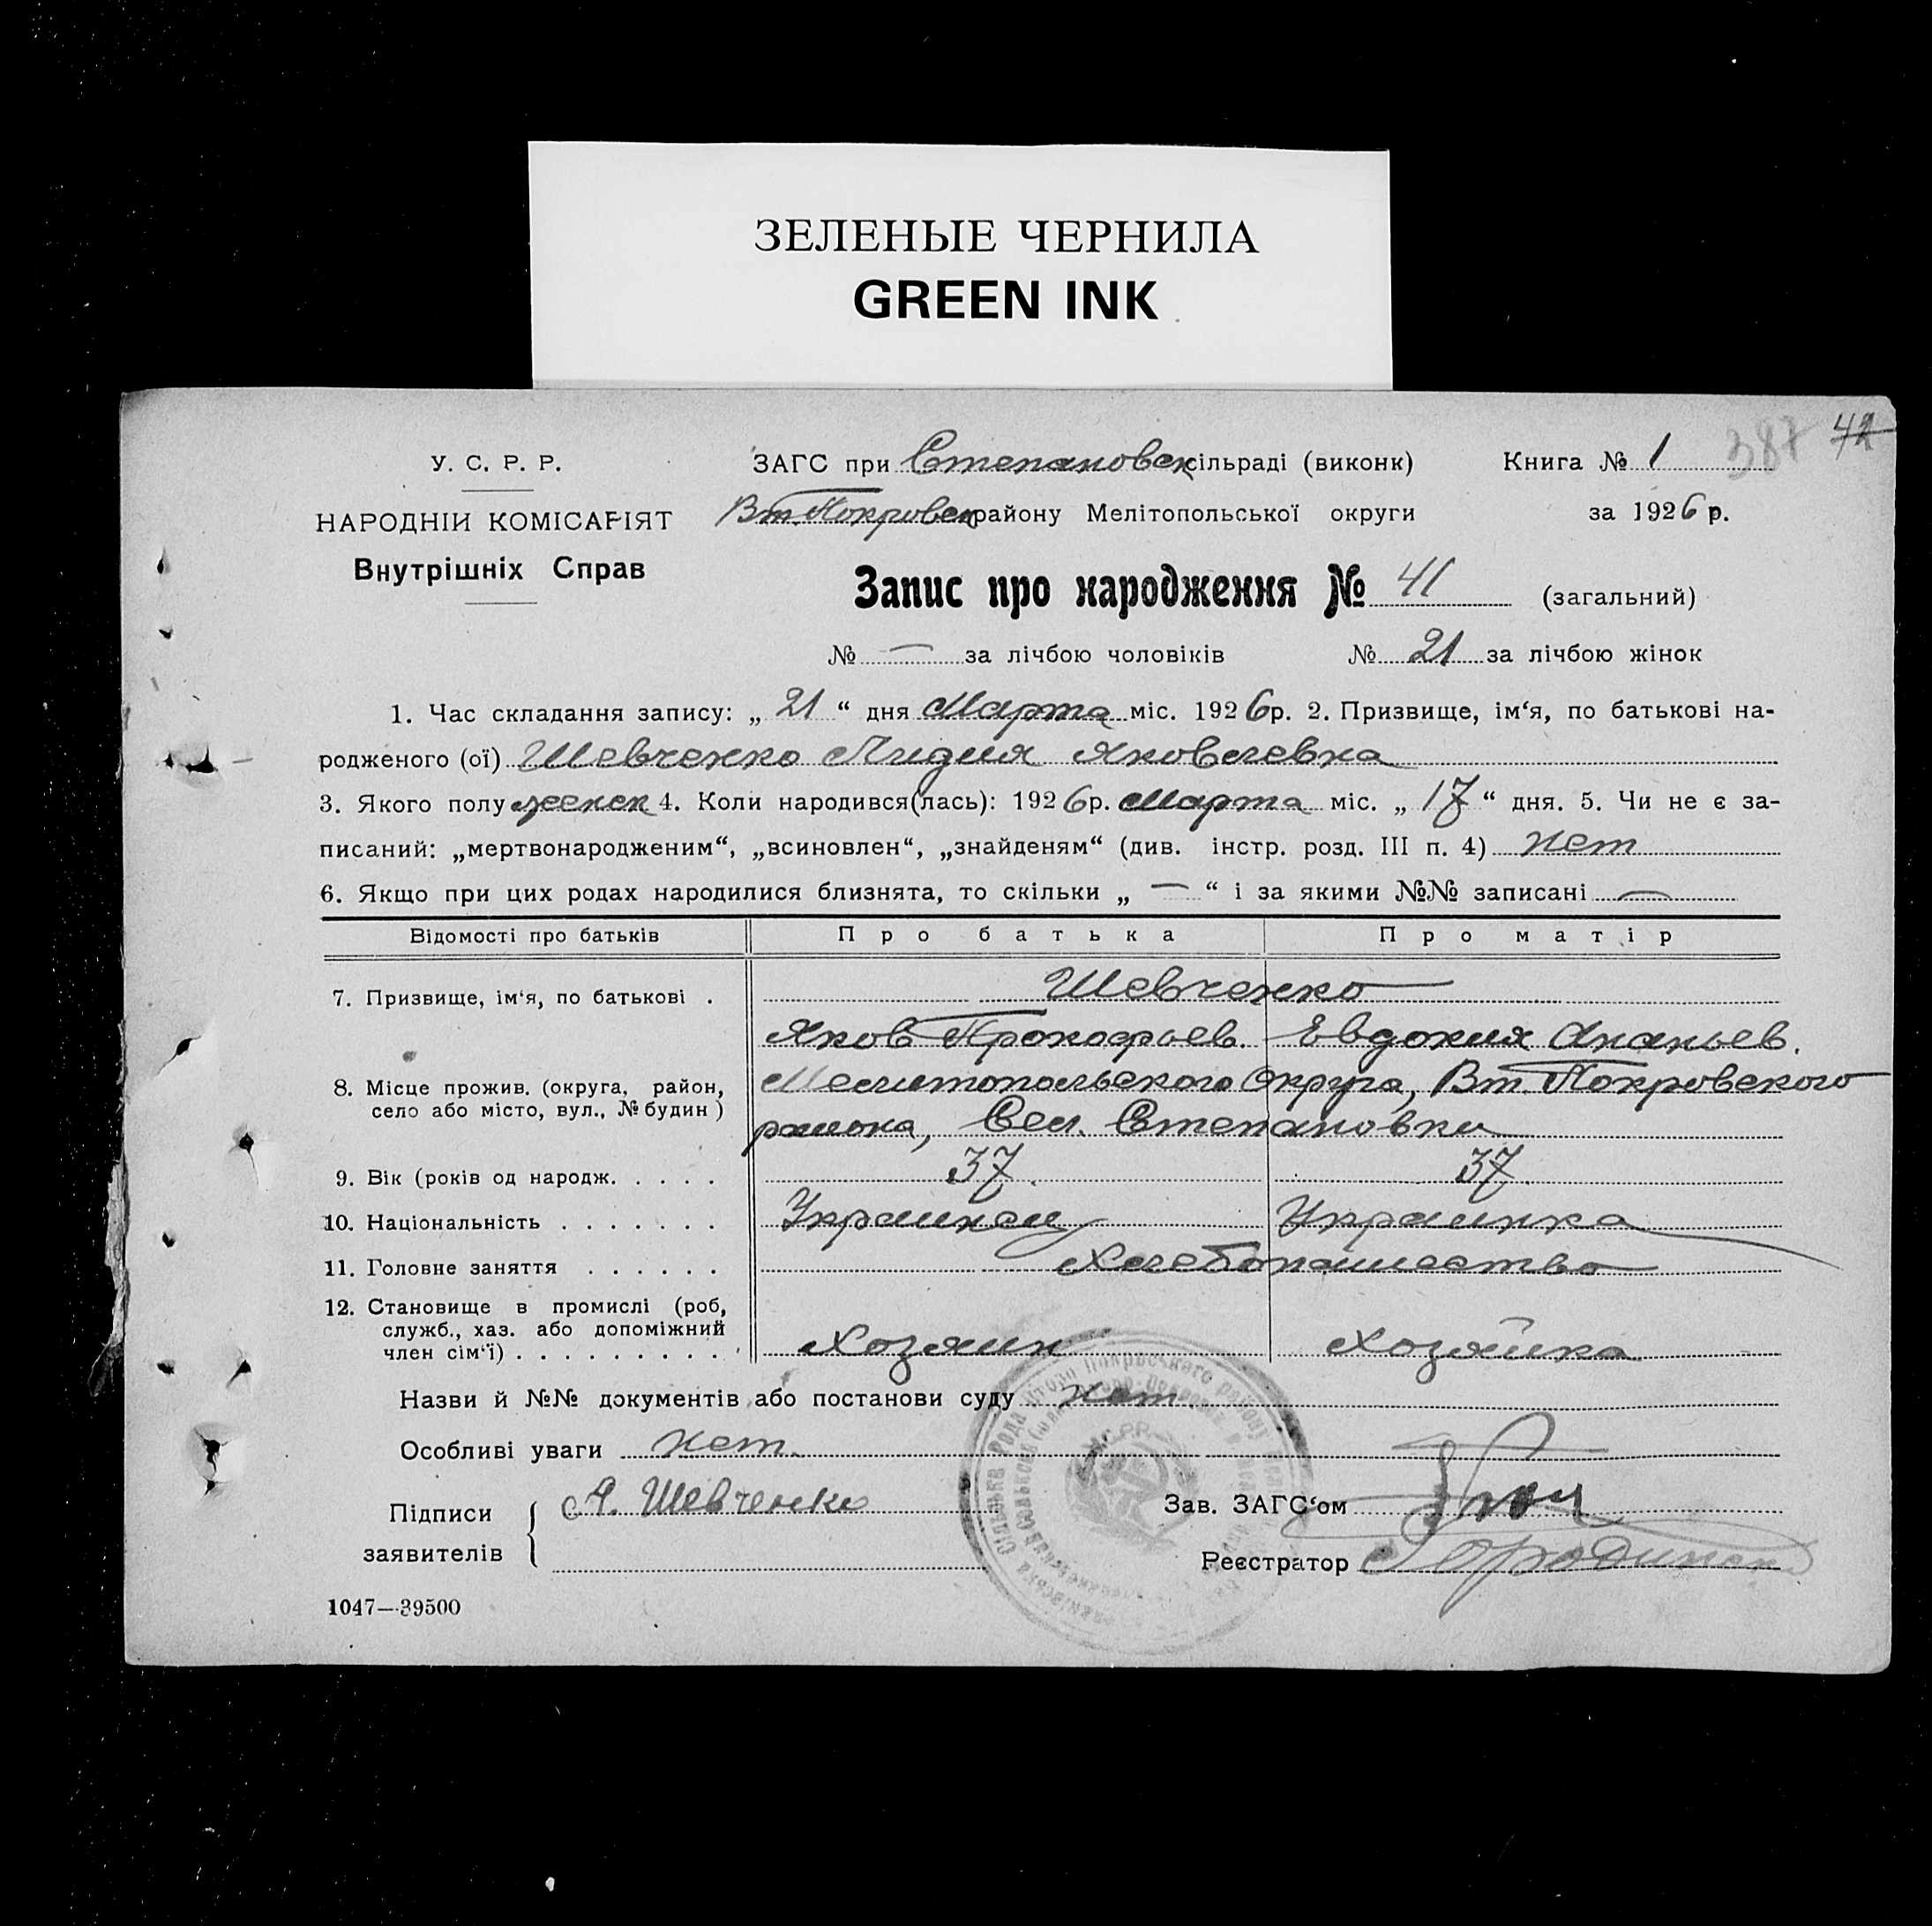 ЗЕЛЕНЫЕ ЧЕРНИЛА
GREEN INK
387 42
У. С. Р. Р. ЗАГС при Степановск сільраді (виконк) Книга № 1
НАРОДНІИ КОМІСАРІЯТ Вт. Покровск району Мелітопольської округи за 1926 р.
Внутрішніх Справ
Запис про народження № 41 (загальний)
№ — за лічбою чоловіків № 21 за лічбою жінок
1. Час складання запису: „ 21 “ дня Марта міс. 1926 р. 2. Призвище, ім‘я, по батькові на-
родженого (ої) Шевченко Лидия Яковлевна
3. Якого полу женск 4. Коли народився(лась): 1926 р. Марта міс. „ 17 “ дня. 5. Чи не є за-
писаний: „мертвонародженим“, „всиновлен“, „знайденям“ (див. інстр. розд. III п. 4) нет
6. Якщо при цих родах народилися близнята, то скільки „ — “ і за якими №№ записані —
Відомості про батьків Про батька Про матір
7. Призвище, ім‘я, по батькові . Шевченко
Яков Прокофьев. Евдокия Ананьев.
8. Місце прожив. (округа, район, Мелитопольского Округа, Вт. Покровского
село або місто, вул., № будин ) района, Сел. Степановки
9. Вік (років од народж. . . . . 37. 37.
10. Національність . . . . . . . Украинец Украинка
11. Головне заняття . . . . . . Хлебопашество
12. Становище в промислі (роб,
служб., хаз. або допоміжний
член сім‘ї) . . . . . . . . . . Хозяин Хозяйка
Назви й №№ документів або постанови суду нет
Особливі уваги нет.
Підписи Я. Шевченко Зав. ЗАГС‘ом
заявителів Реєстратор
1047—39500